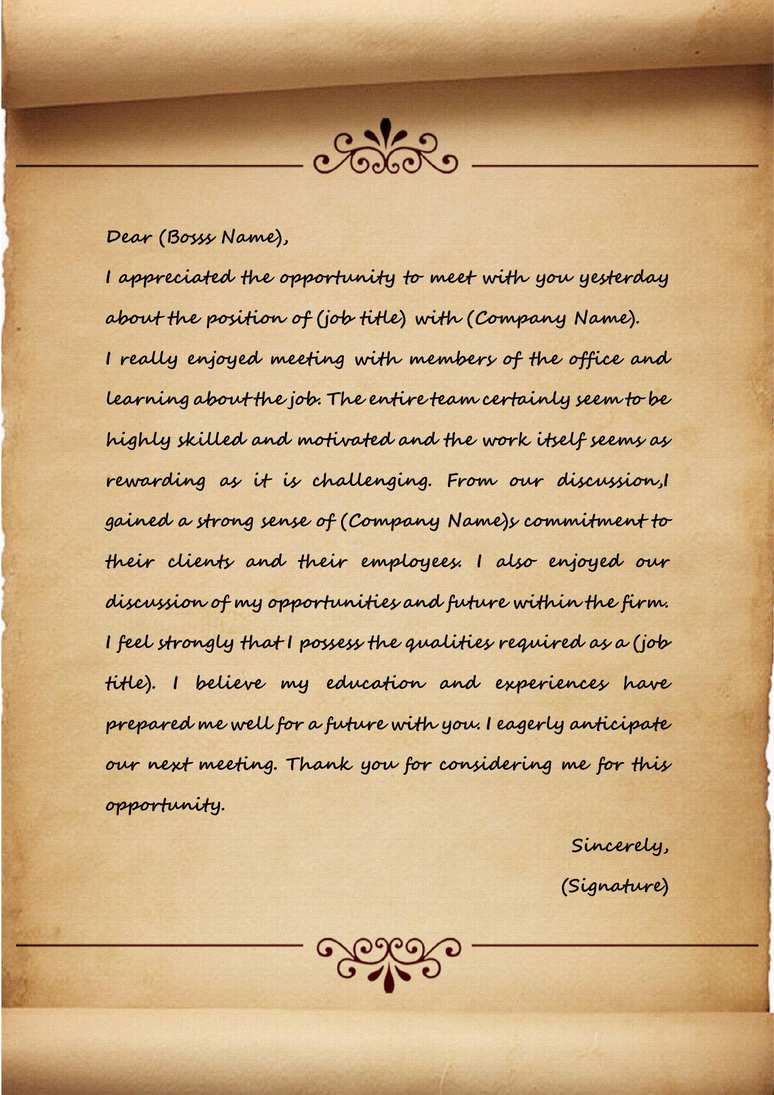 Dear (Bosss Name),
I appreciated the opportunity to meet with you yesterday
about the position of (job title) with (Company Name).
I really enjoyed meeting with members of the office and
learning about the job. The entire team certainly seem to be
highly skilled and motivated and the work itself seems as
rewarding as it is challenging. From our discussion,I
gained a strong sense of (Company Name)s commitment to
their clients and their employees. I also enjoyed our
discussion of my opportunities and future within the firm.
I feel strongly that I possess the qualities required as a (job
title). I believe my education and experiences have
prepared me well for a future with you. I eagerly anticipate
our next meeting. Thank you for considering me for this
opportunity.
Sincerely,
(Signature)